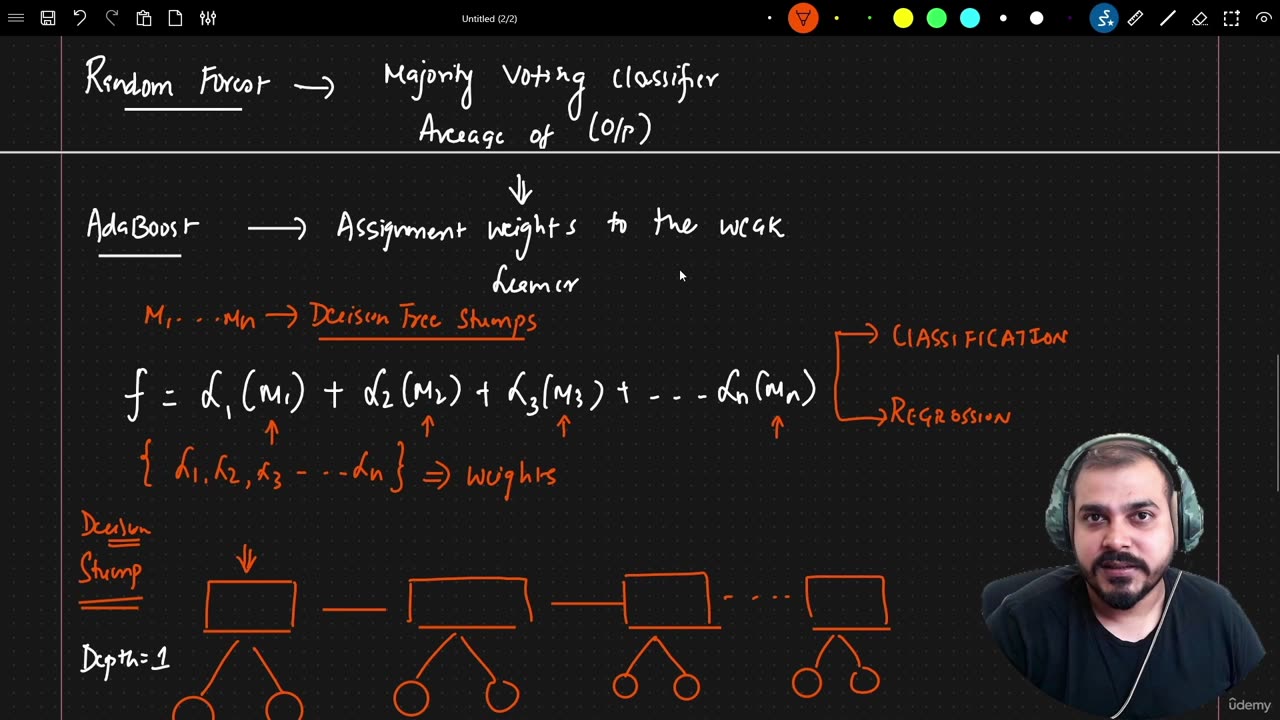 Untitled (2/2)
Random Forest → Majority Voting Classifier
Average of (O/P)
AdaBoost → Assignment weights to the weak
Learner
M1....Mn → Decision Tree Stumps
→ CLASSIFICATION
f = α1(M1) + α2(M2) + α3(M3) + ... αn(Mn)
→ REGRESSION
{α1, α2, α3 - ... αn} ⇒ weights
Decision
Stump
Depth=1
ûdemy